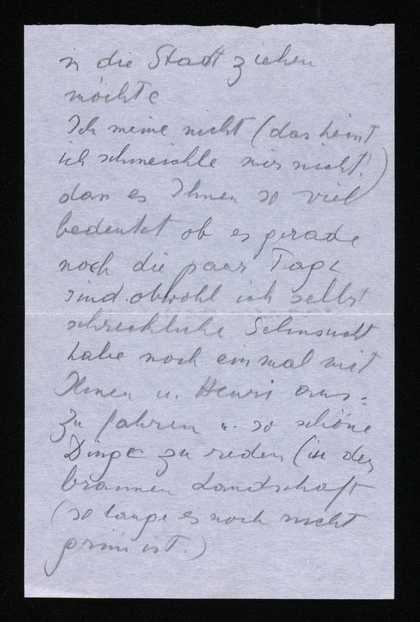 in die Stadt ziehen
möchte
Ich meine nicht (das heisst
ich schmeichle mir nicht!)
dass es Ihnen so viel
bedeutet ob es gerade
noch die paar Tage
sind obwohl ich selbst
schreckliche Sehnsucht
habe noch einmal mit
Ihnen u. Henri aus=
zu fahren u. so schöne
Dinge zu reden (in der
braunen Landschaft
(so lange es noch nicht
grün ist.)